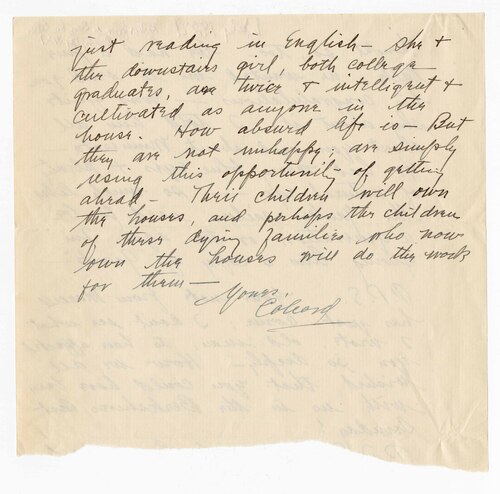 just reading in English – she &
the downstairs girl, both college
graduates, are twice & intelligent &
cultivated as anyone in the
house. How absurd life is – But
they are not unhappy; are simply
using this opportunity of getting
ahead – Their children will own
the houses, and perhaps the children
of these dying families who now
own the houses will do the work
for them –
Yours,